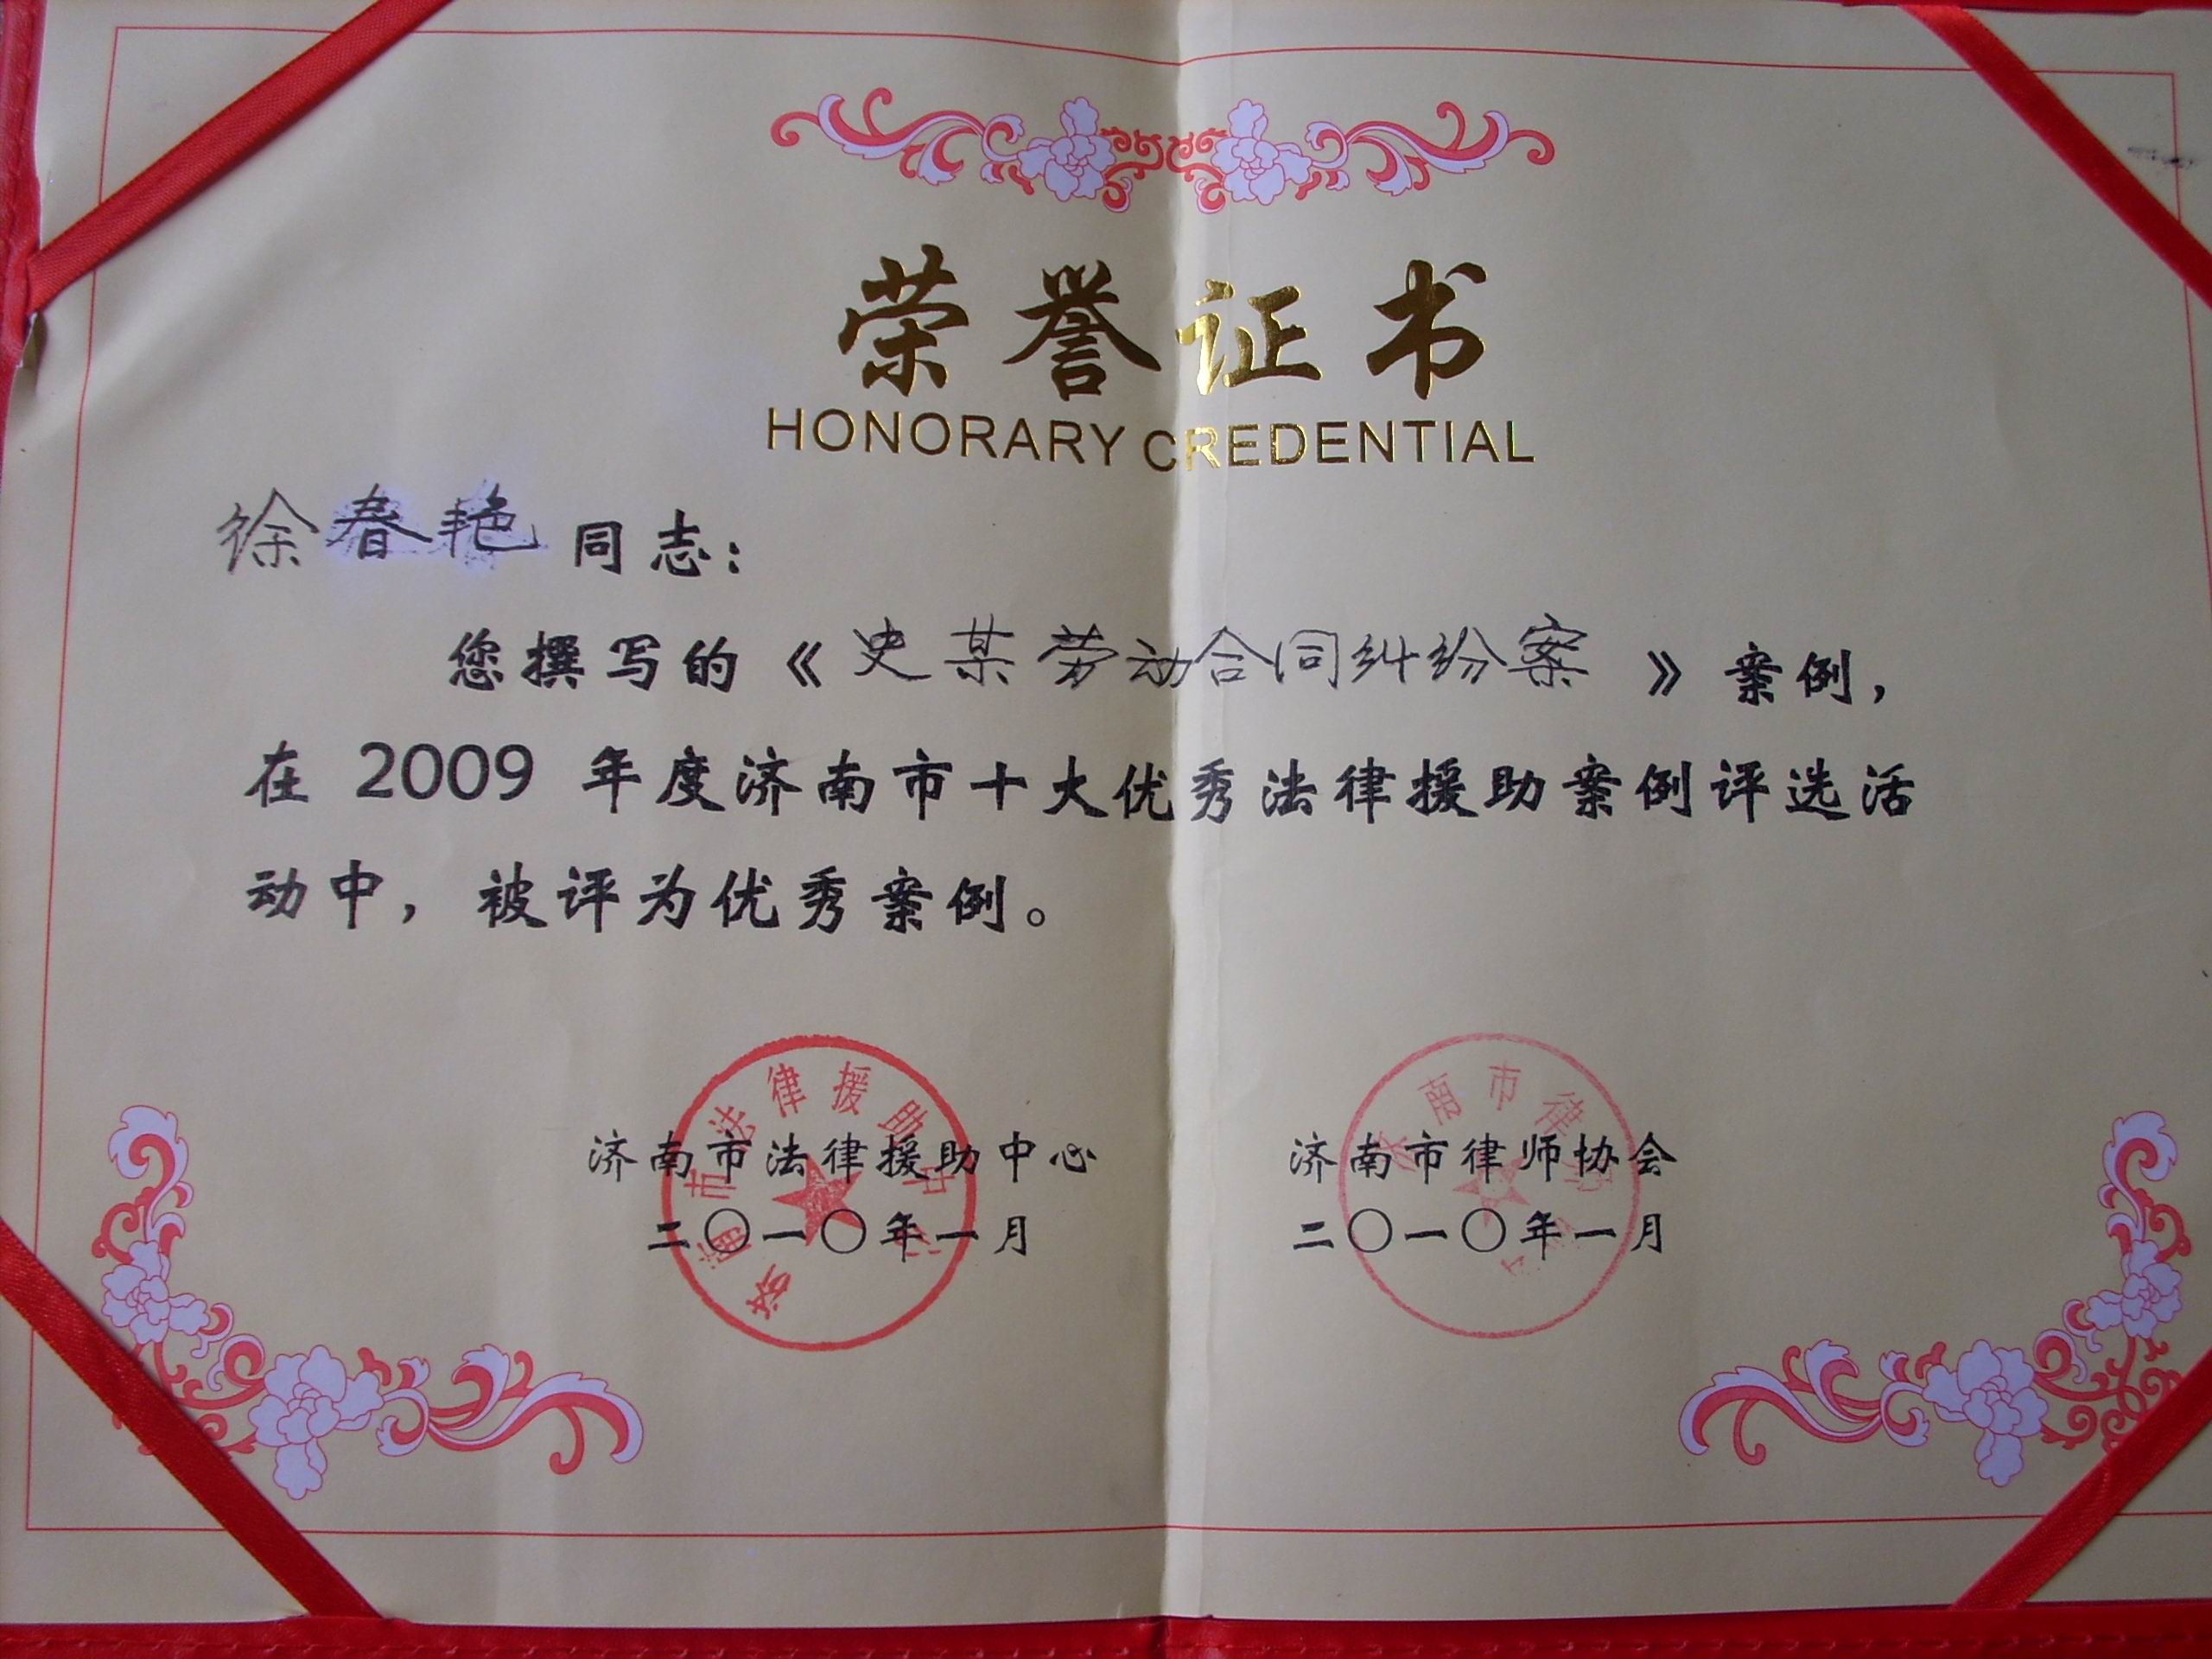 荣誉证书
HONORARY CREDENTIAL
徐春艳 同志：
您撰写的《史某劳动合同纠纷案》案例，
在 2009 年度济南市十大优秀法律援助案例评选活
动中，被评为优秀案例。
济南市法律援助中心
二〇一〇年一月
济南市律师协会
二〇一〇年一月
济南市法律援助中心
南市律